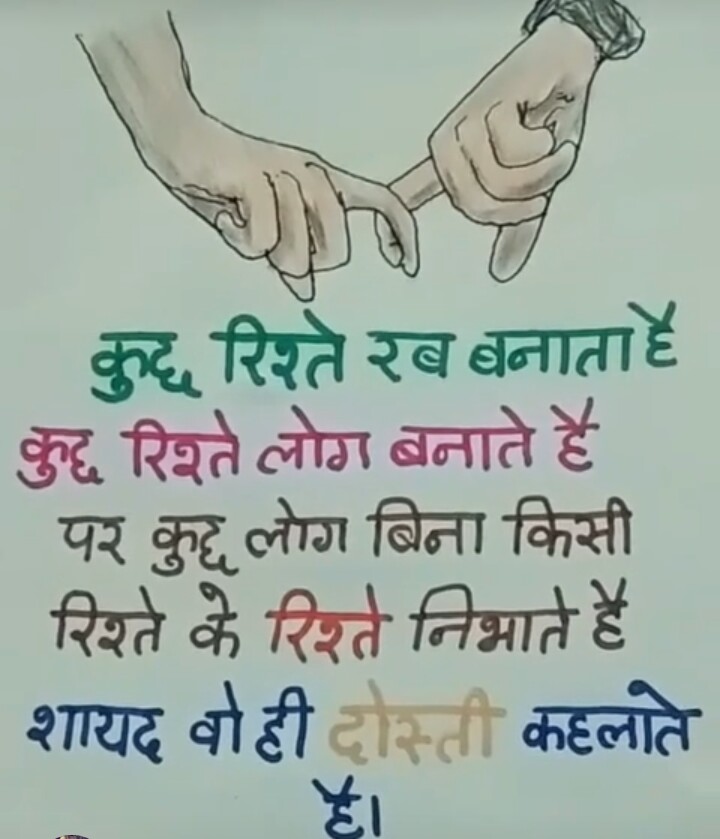 कुछ रिश्ते रब बनाता है
कुछ रिश्ते लोग बनाते है
पर कुछ लोग बिना किसी
रिश्ते के रिश्ते निभाते है
शायद वो ही दोस्ती कहलाते
है।